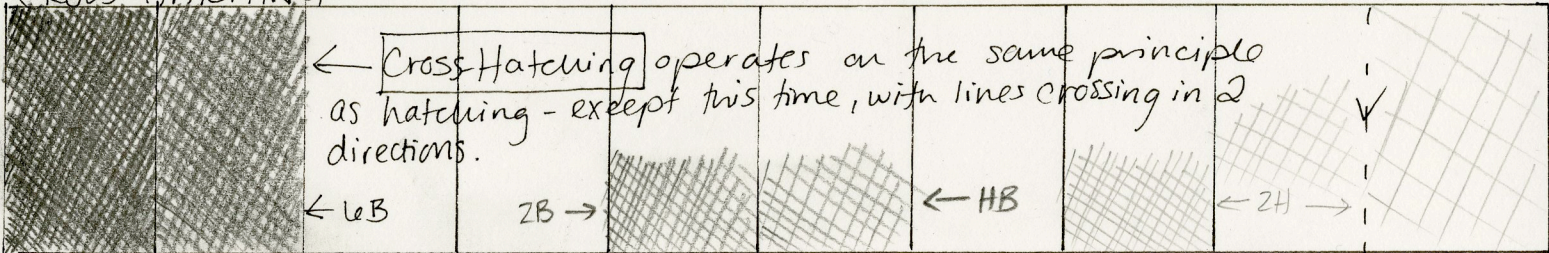 ← Cross-Hatching operates on the same principle
as hatching - except this time, with lines crossing in 2
directions.
← 6B 2B → ← HB ← 2H →